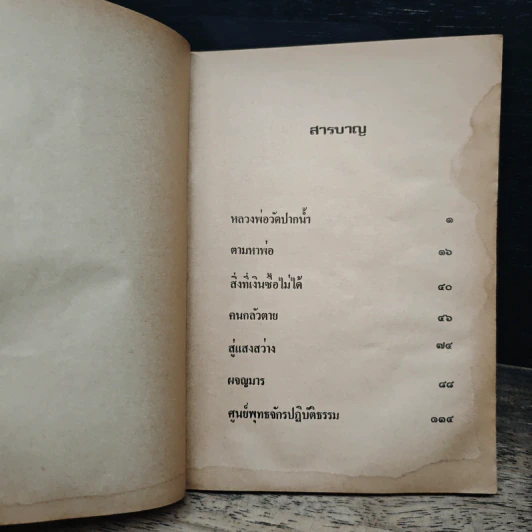 สารบาญ
หลวงพ่อวัดปากน้ำ ๑
ตามหาพ่อ ๑๖
สิ่งที่เงินซื้อไม่ได้ ๔๐
คนกลัวตาย ๔๖
สู่แสงสว่าง ๗๔
ผจญมาร ๘๘
ศูนย์พุทธจักรปฏิบัติธรรม ๑๑๔